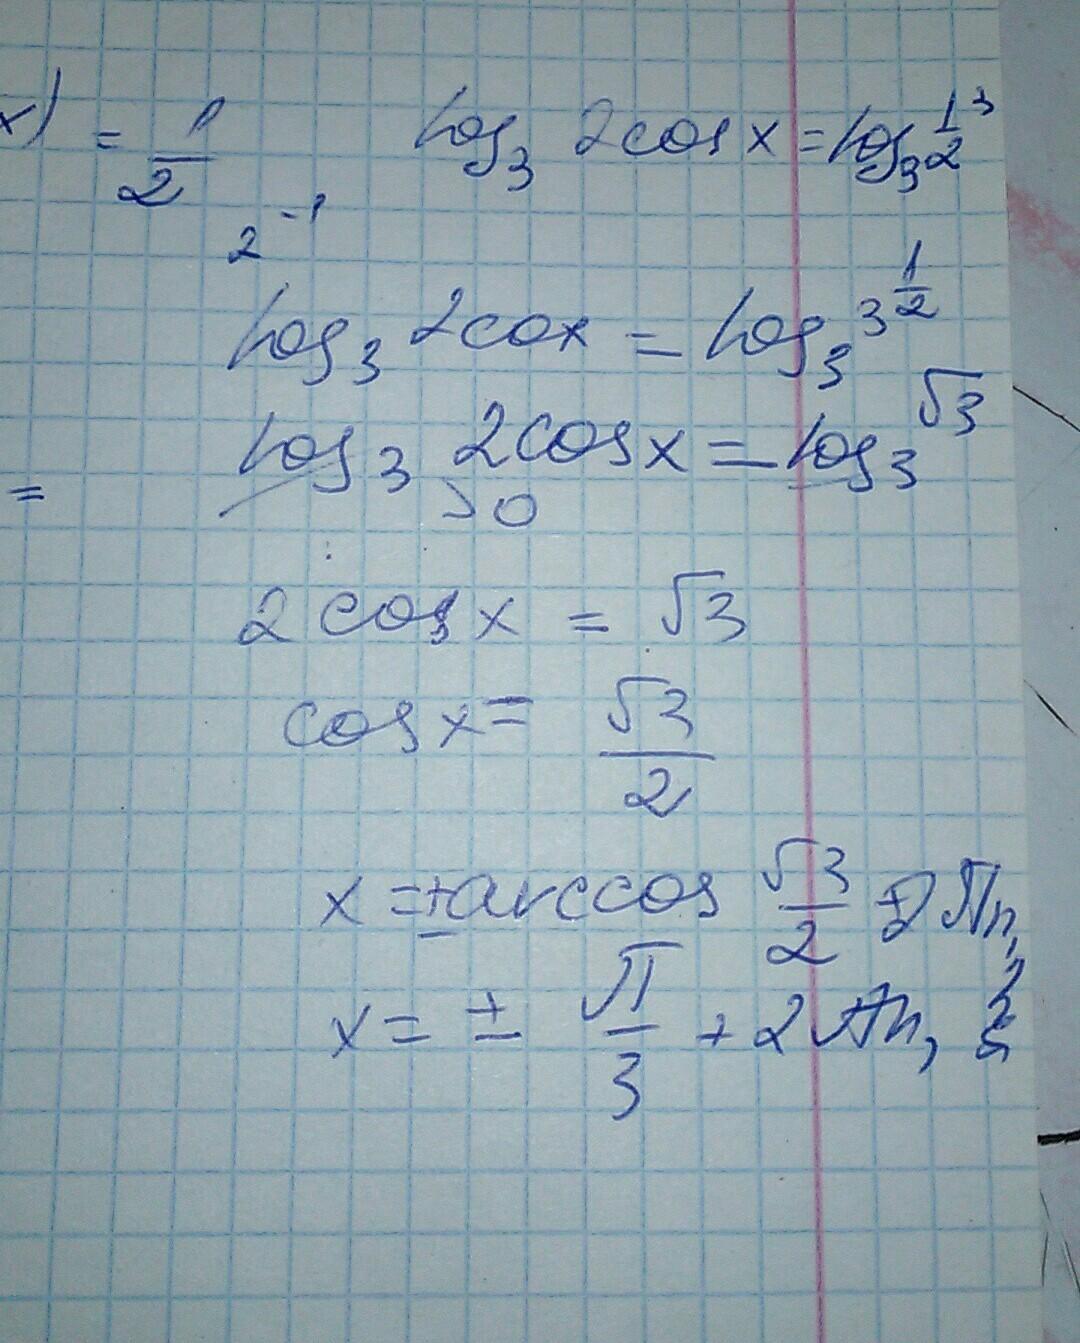 x) = 1/2 log₃ 2cos x = log₃ 1/2 ³
2⁻¹
log₃ 2cox = log₃ 3^(1/2)
= log₃ 2cos x = log₃ √3
>0
2 cos x = √3
cos x = √3/2
x = ±arccos √3/2 + 2πn,
x = ± π/3 + 2πn,